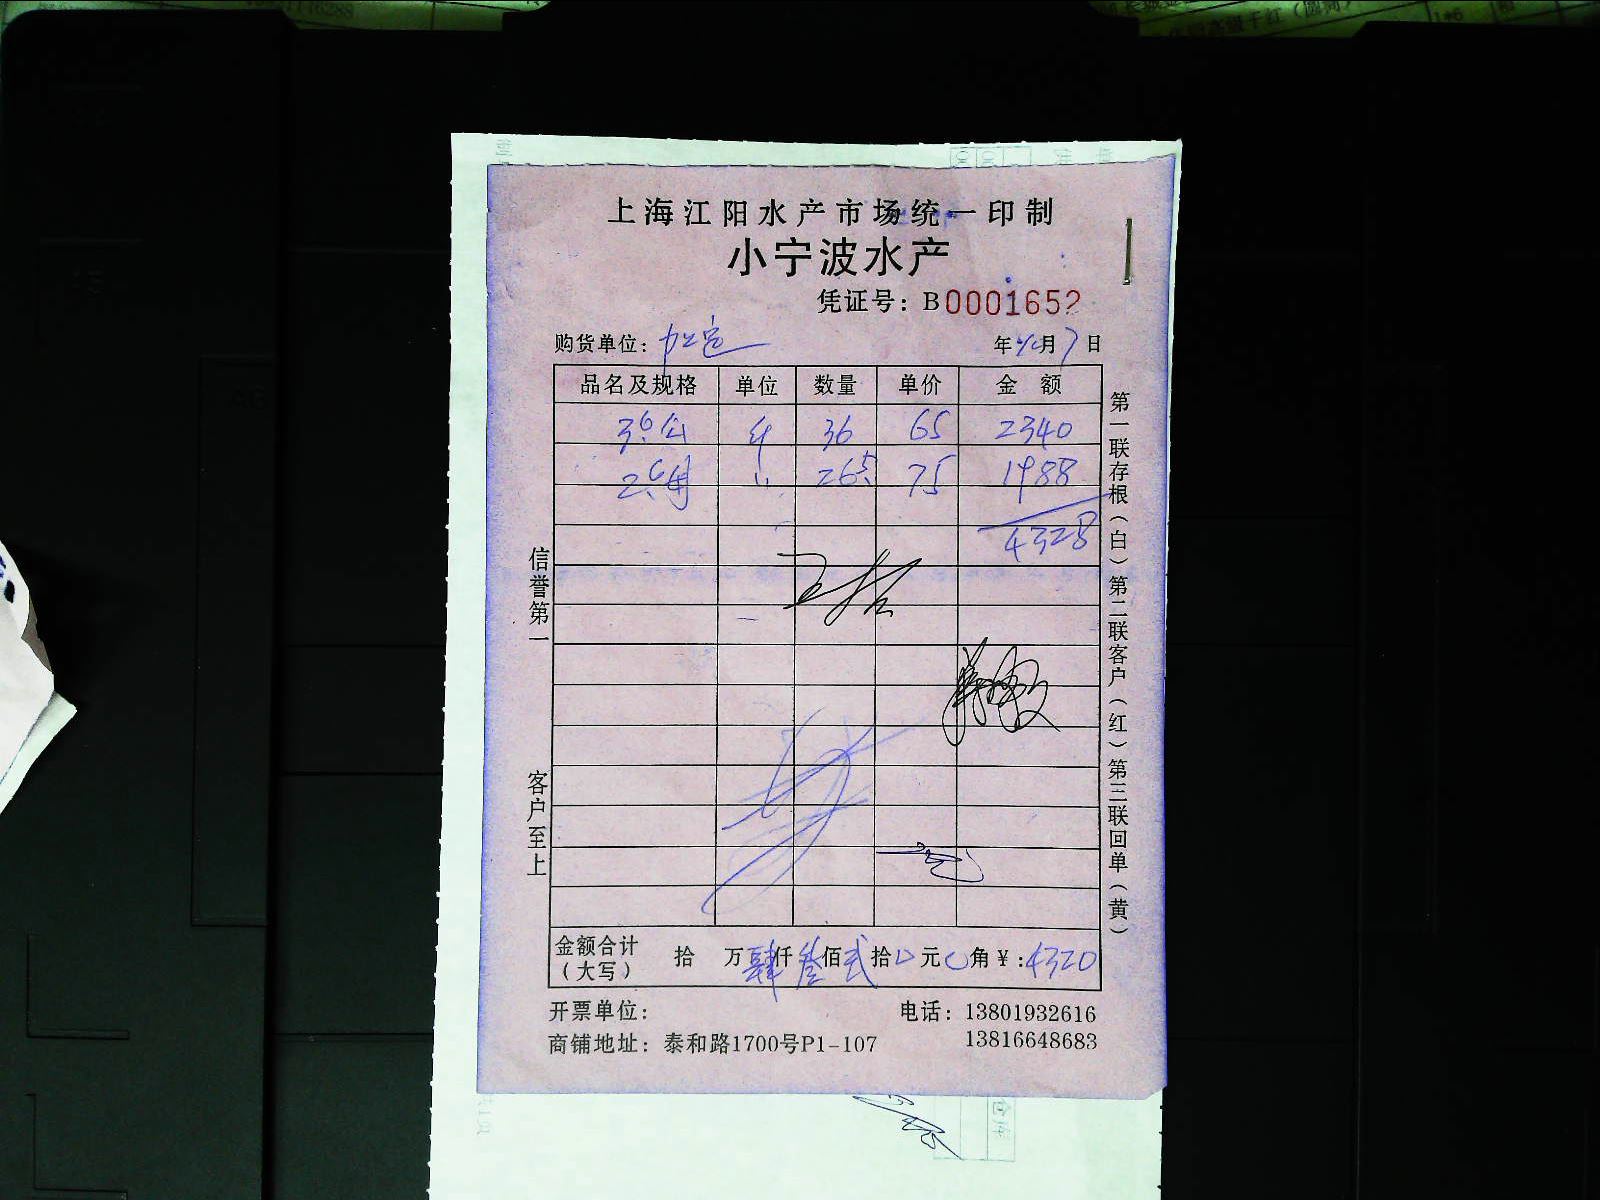 上海江阳水产市场统一印制
小宁波水产
凭证号：B0001652
购货单位： 年 月7日
品名及规格 单位 数量 单价 金额
3.0公 斤 36 65 2340
2.6母 〃 26.5 75 1988
4328
信誉第一
客户至上
第一联存根（白）第二联客户（红）第三联回单（黄）
金额合计（大写） 拾 万肆仟叁佰贰拾0元0角￥：4320
开票单位： 电话：13801932616
商铺地址：泰和路1700号P1-107 13816648683